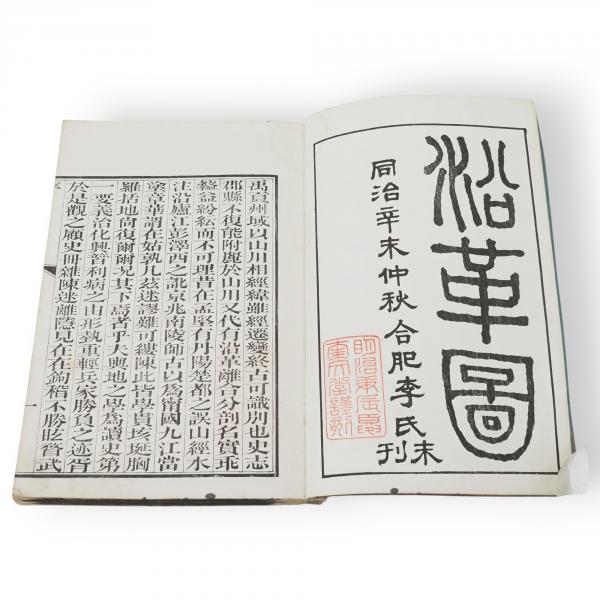 沿革圖
同治辛未仲秋合肥李氏刊
明治庚辰
禹貢州域以山川相經緯雖經遷變終古可識別也史志
郡縣不復能附麗於山川又代有沿革離合分剖名實乖
益紛紜而不可理昔在孟堅有丹陽楚都之誤山經水
注沿廬江彭澤西之訛京兆南陵師古以爲甯國九江當
塗章華謂在姑孰凡茲迷謬難可縷陳此皆學貫垓埏胸
羅括地尙復爾爾況其下焉者乎夫輿地之學爲讀史第
一要義治化興替利病之由形執重輕兵家勝負之迹胥
於是觀之顧史冊雜陳迷離隱見在在鉤稽不勝眩瞀武
一